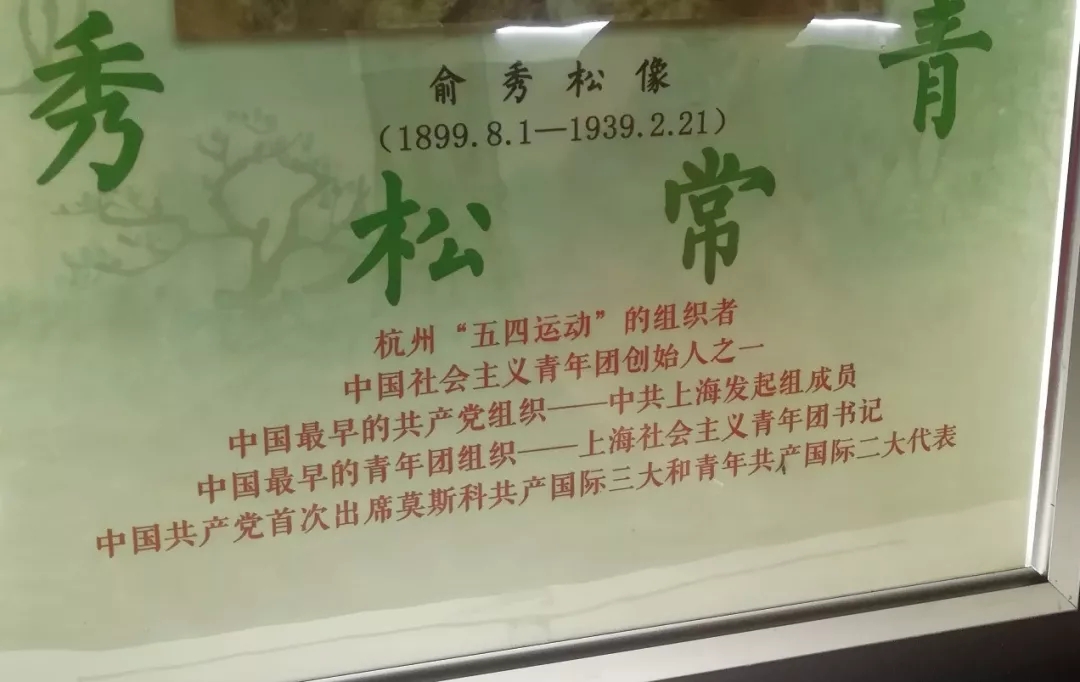 秀松常青
俞秀松像
（1899.8.1—1939.2.21）
杭州“五四运动”的组织者
中国社会主义青年团创始人之一
中国最早的共产党组织——中共上海发起组成员
中国最早的青年团组织——上海社会主义青年团书记
中国共产党首次出席莫斯科共产国际三大和青年共产国际二大代表